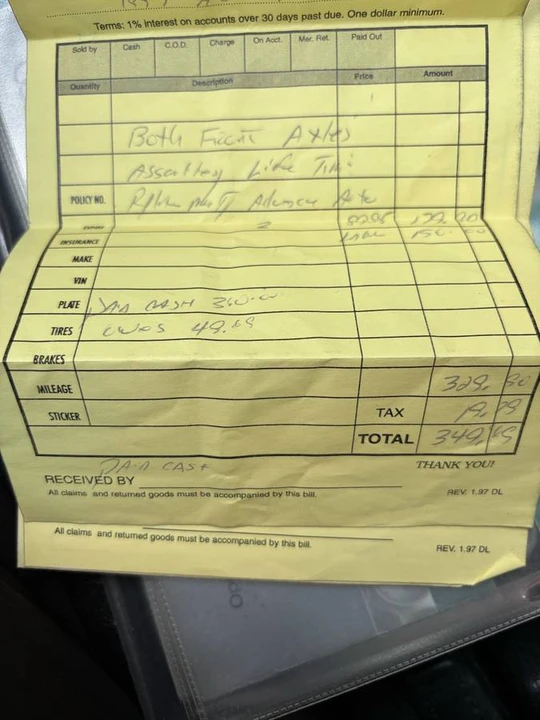 Terms: 1% interest on accounts over 30 days past due. One dollar minimum.
Sold by Cash C.O.D. Charge On Acct. Mer. Ret. Paid Out
Quantity Description Price Amount
Both Front Axles
Life Time
POLICY NO. Advance
INSURANCE 150.00
MAKE
VIN
PLATE CASH
TIRES owes 49.69
BRAKES
MILEAGE 329.90
STICKER TAX 19.79
TOTAL 349.69
CASH THANK YOU!
RECEIVED BY
All claims and returned goods must be accompanied by this bill. REV. 1.97 DL
All claims and returned goods must be accompanied by this bill. REV. 1.97 DL